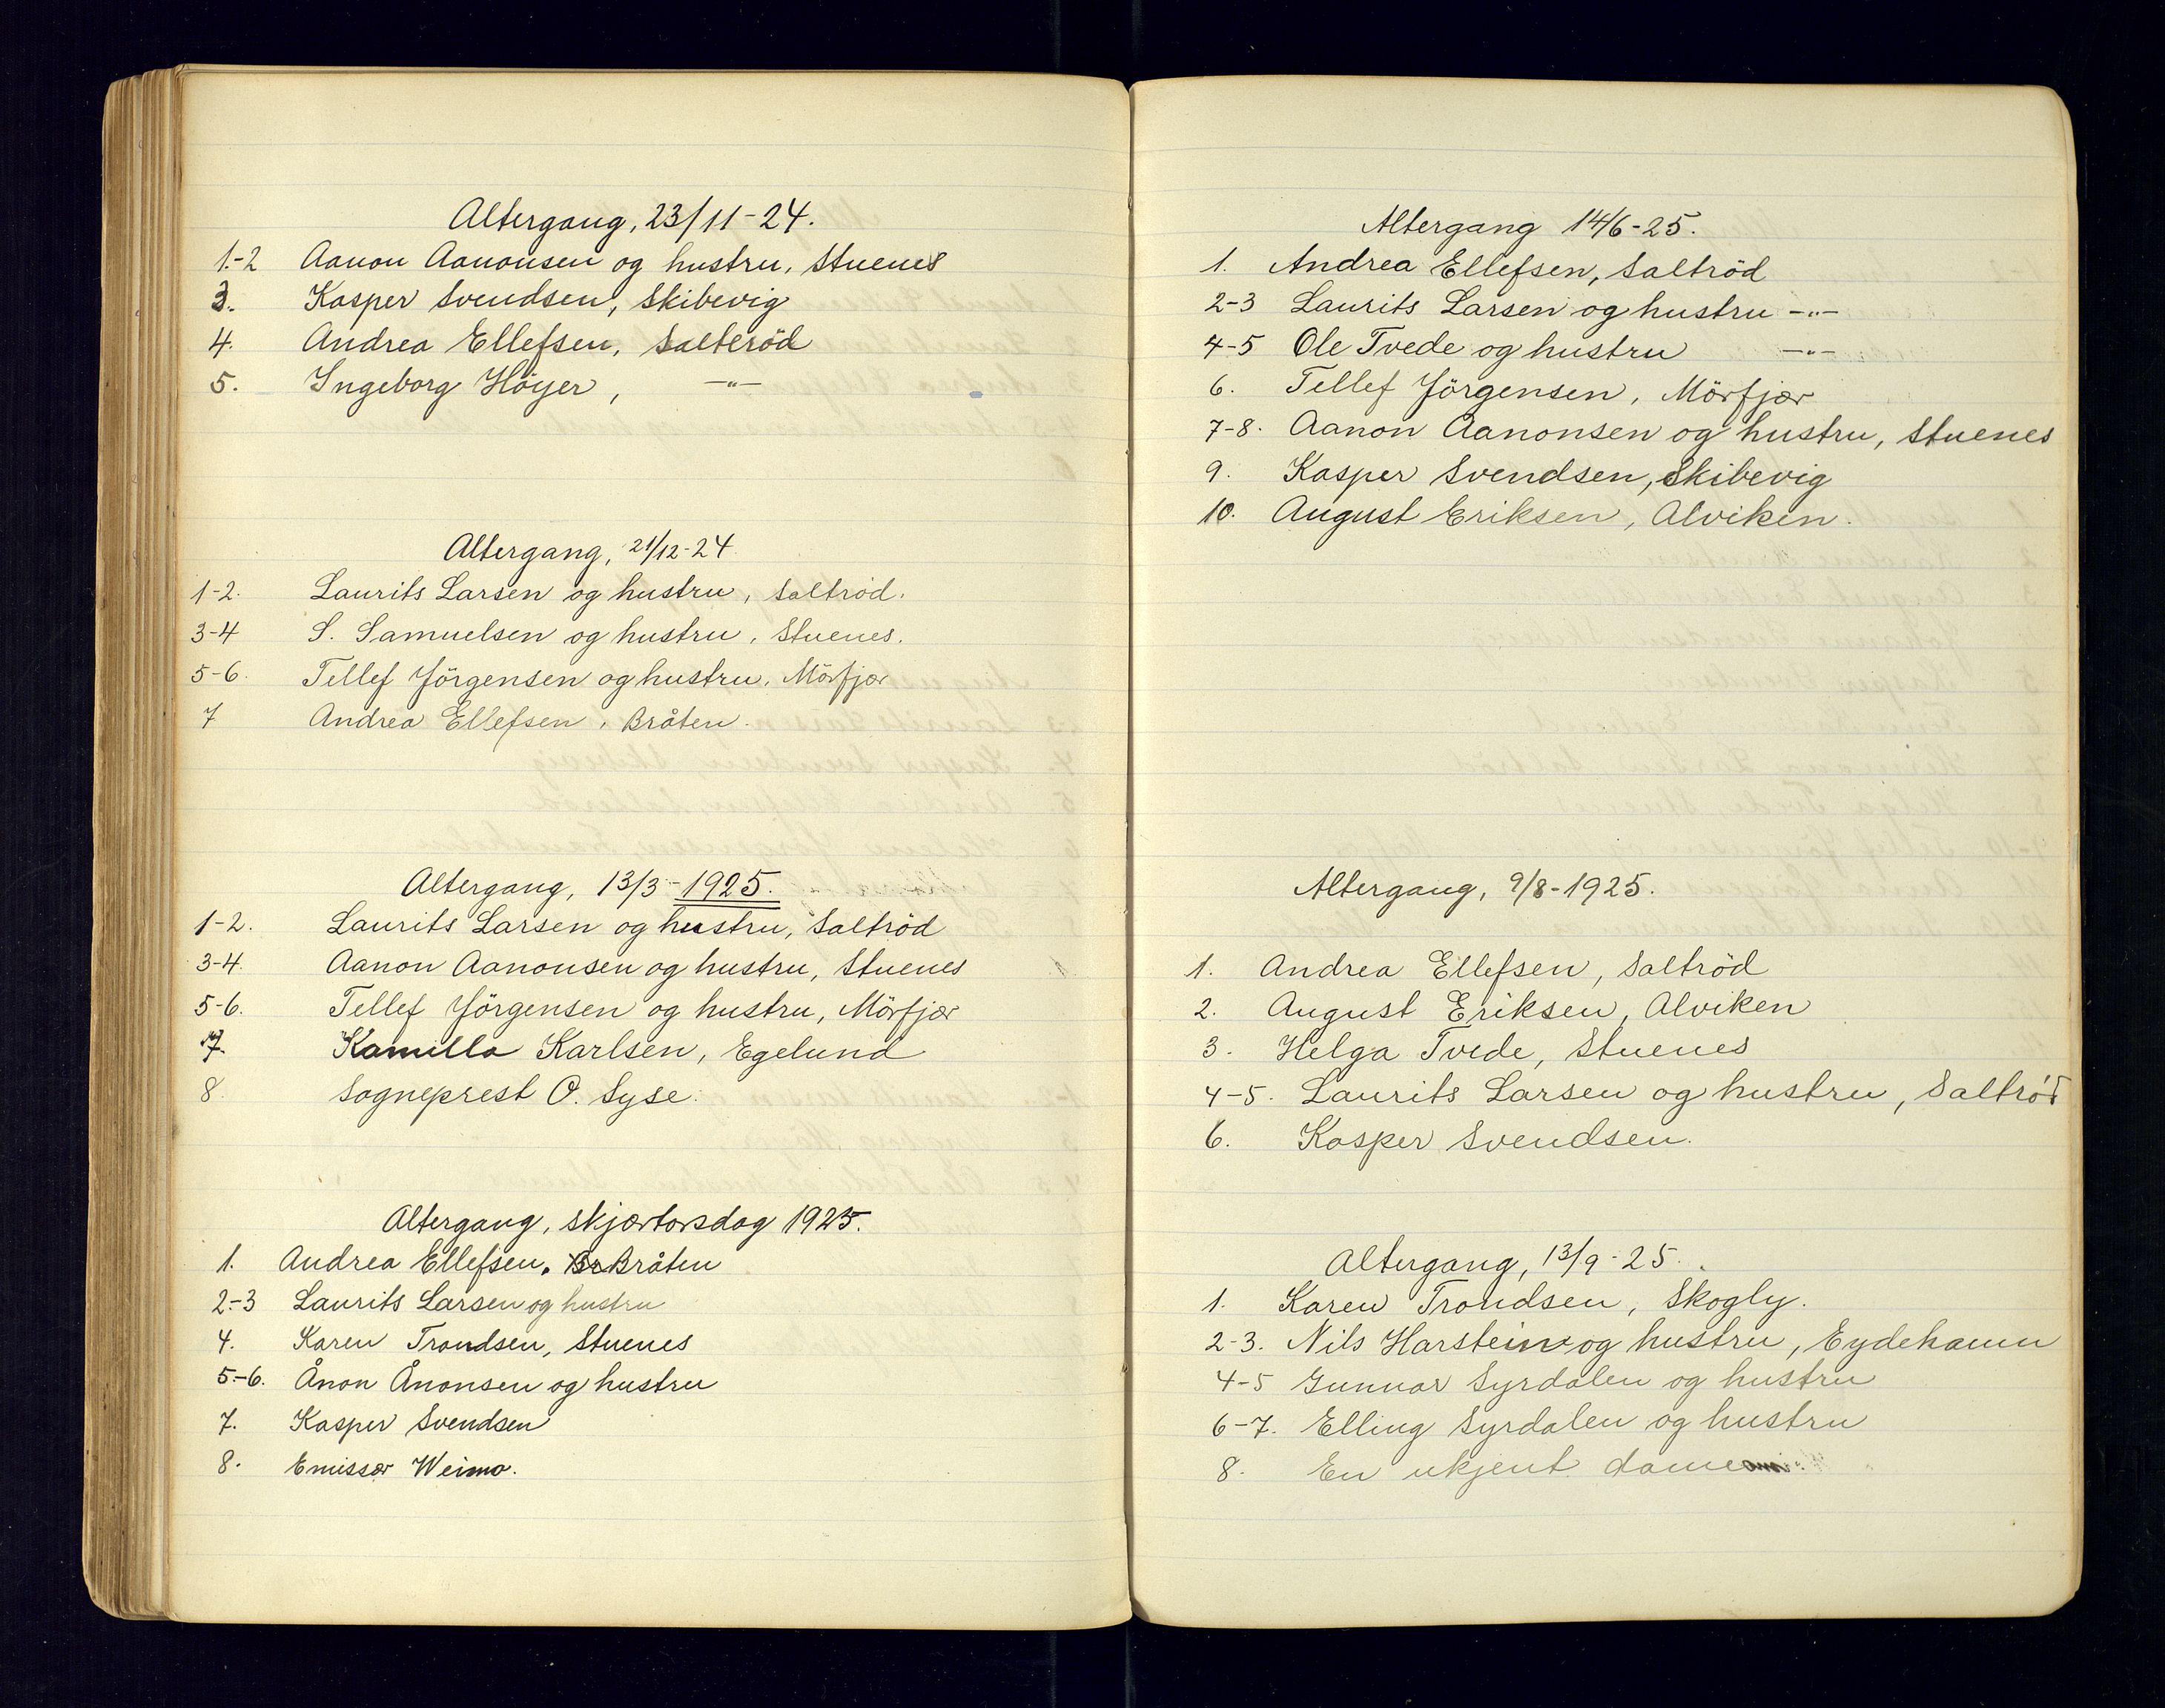 Altergang, 23/11-24.
1.-2 Aanon Aanonsen og hustru, Stuenes
3. Kasper Svendsen, Skibevig
4. Andrea Ellefsen, Salterød
5. Ingeborg Höyer, -"-
Altergang, 21/12-24
1-2. Laurits Larsen og hustru, Saltröd.
3-4 S. Samuelsen og hustru, Stuenes.
5-6. Tellef Jörgensen og hustru, Mörfjær
7 Andrea Ellefsen, Bråten.
Altergang, 13/3-1925.
1-2. Laurits Larsen og hustru, Saltröd
3-4. Aanon Aanonsen og hustru, Stuenes
5-6. Tellef Jörgensen og hustru, Mörfjær
7. Kamilla Karlsen, Egelund
8. Sogneprest O. Syse.
Altergang, skjærtorsdag 1925.
1. Andrea Ellefsen, Br Bråten
2.-3 Laurits Larsen og hustru
4. Karen Trondsen, Stuenes
5.-6. Ånon Ånonsen og hustru
7. Kasper Svendsen
8. Emissær Weimo.
Altergang 14/6-25.
1. Andrea Ellefsen, Saltröd
2-3 Laurits Larsen og hustru -"-
4-5 Ole Tvede og hustru -"-
6. Tellef Jörgensen, Mörfjær
7-8. Aanon Aanonsen og hustru, Stuenes
9. Kasper Svendsen, Skibevig
10. August Eriksen, Alviken.
Altergang, 9/8-1925.
1. Andrea Ellefsen, Saltröd
2. August Eriksen, Alviken
3. Helga Tvede, Stuenes
4-5. Laurits Larsen og hustru, Saltröd
6. Kasper Svendsen.
Altergang, 13/9-25.
1. Karen Trondsen, Skogly.
2-3. Nils Harstein og hustru, Eydehavn
4-5 Gunnar Syrdalen og hustru
6-7. Elling Syrdalen og hustru
8. En ukjent dame